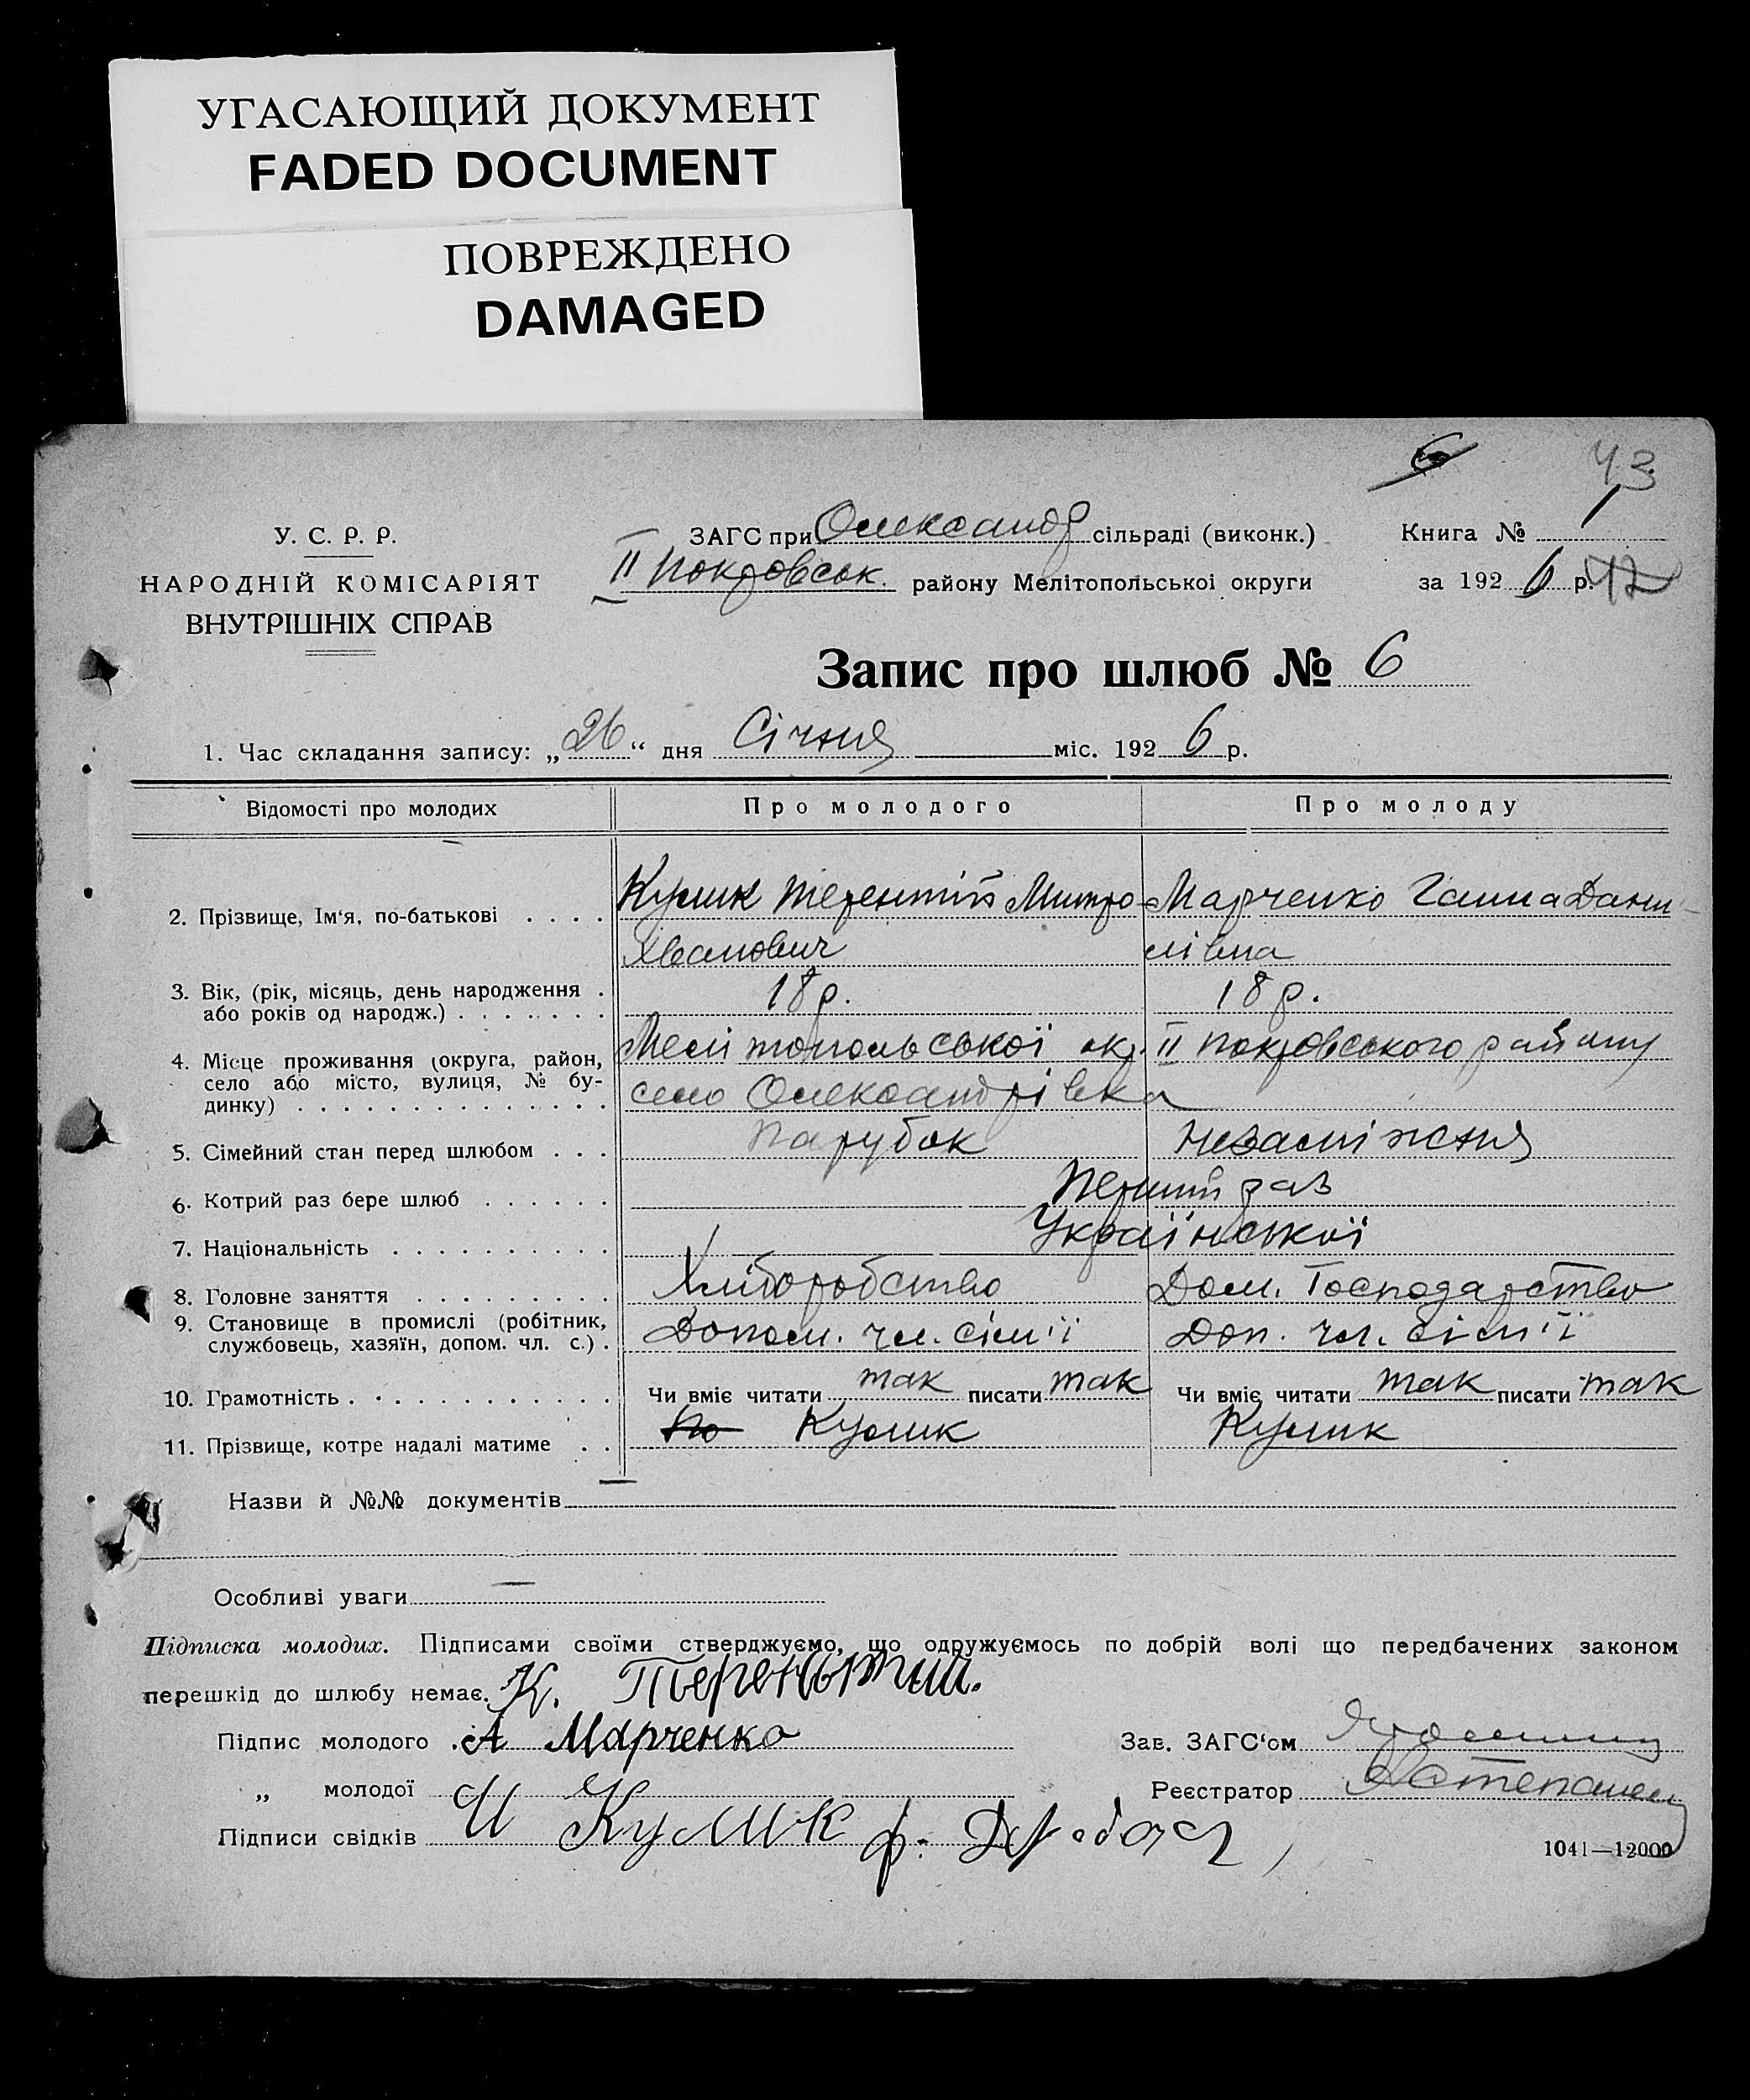 УГАСАЮЩИЙ ДОКУМЕНТ
FADED DOCUMENT
ПОВРЕЖДЕНО
DAMAGED
6 43
У. С. Р. Р.
НАРОДНІЙ КОМІСАРІЯТ
ВНУТРІШНІХ СПРАВ
ЗАГС при Олександр сільраді (виконк.)
II Покровськ. району Мелітопольської округи
Книга № 1
за 1926 р. 42
Запис про шлюб № 6
1. Час складання запису: „26“ дня Січня міс. 1926 р.
Відомості про молодих Про молодого Про молоду
2. Прізвище, Ім'я, по-батькові . . . . Кулик Терентій Митро- Марченко Ганна Дани-
Хванович лівна
3. Вік, (рік, місяць, день народження . 18 р. 18 р.
або років од народж.) . . . . . . .
4. Місце проживання (округа, район, Мелітопольської окр. II Покровського району
село або місто, вулиця, № бу- село Олександрівка
динку) . . . . . . . . . . . . . .
5. Сімейний стан перед шлюбом . . . Парубок Незаміжня
6. Котрий раз бере шлюб . . . . . . Перший раз
7. Національність . . . . . . . . . . Української
8. Головне заняття . . . . . . . . . Хліборобство Дом. Господарство
9. Становище в промислі (робітник,
службовець, хазяїн, допом. чл. с.) . Допом. чл. сім'ї Доп. чл. сім'ї
10. Грамотність . . . . . . . . . . . . Чи вміє читати так писати так Чи вміє читати так писати так
11. Прізвище, котре надалі матиме . . По Кулик Кулик
Назви й №№ документів
Особливі уваги
Підписка молодих. Підписами своїми стверджуємо, що одружуємось по добрій волі що передбачених законом
перешкід до шлюбу немає. К. Терентий.
Підпис молодого . А Марченко Зав. ЗАГС'ом
„ молодої Реєстратор
Підписи свідків И Кулик ф.
1041—12000